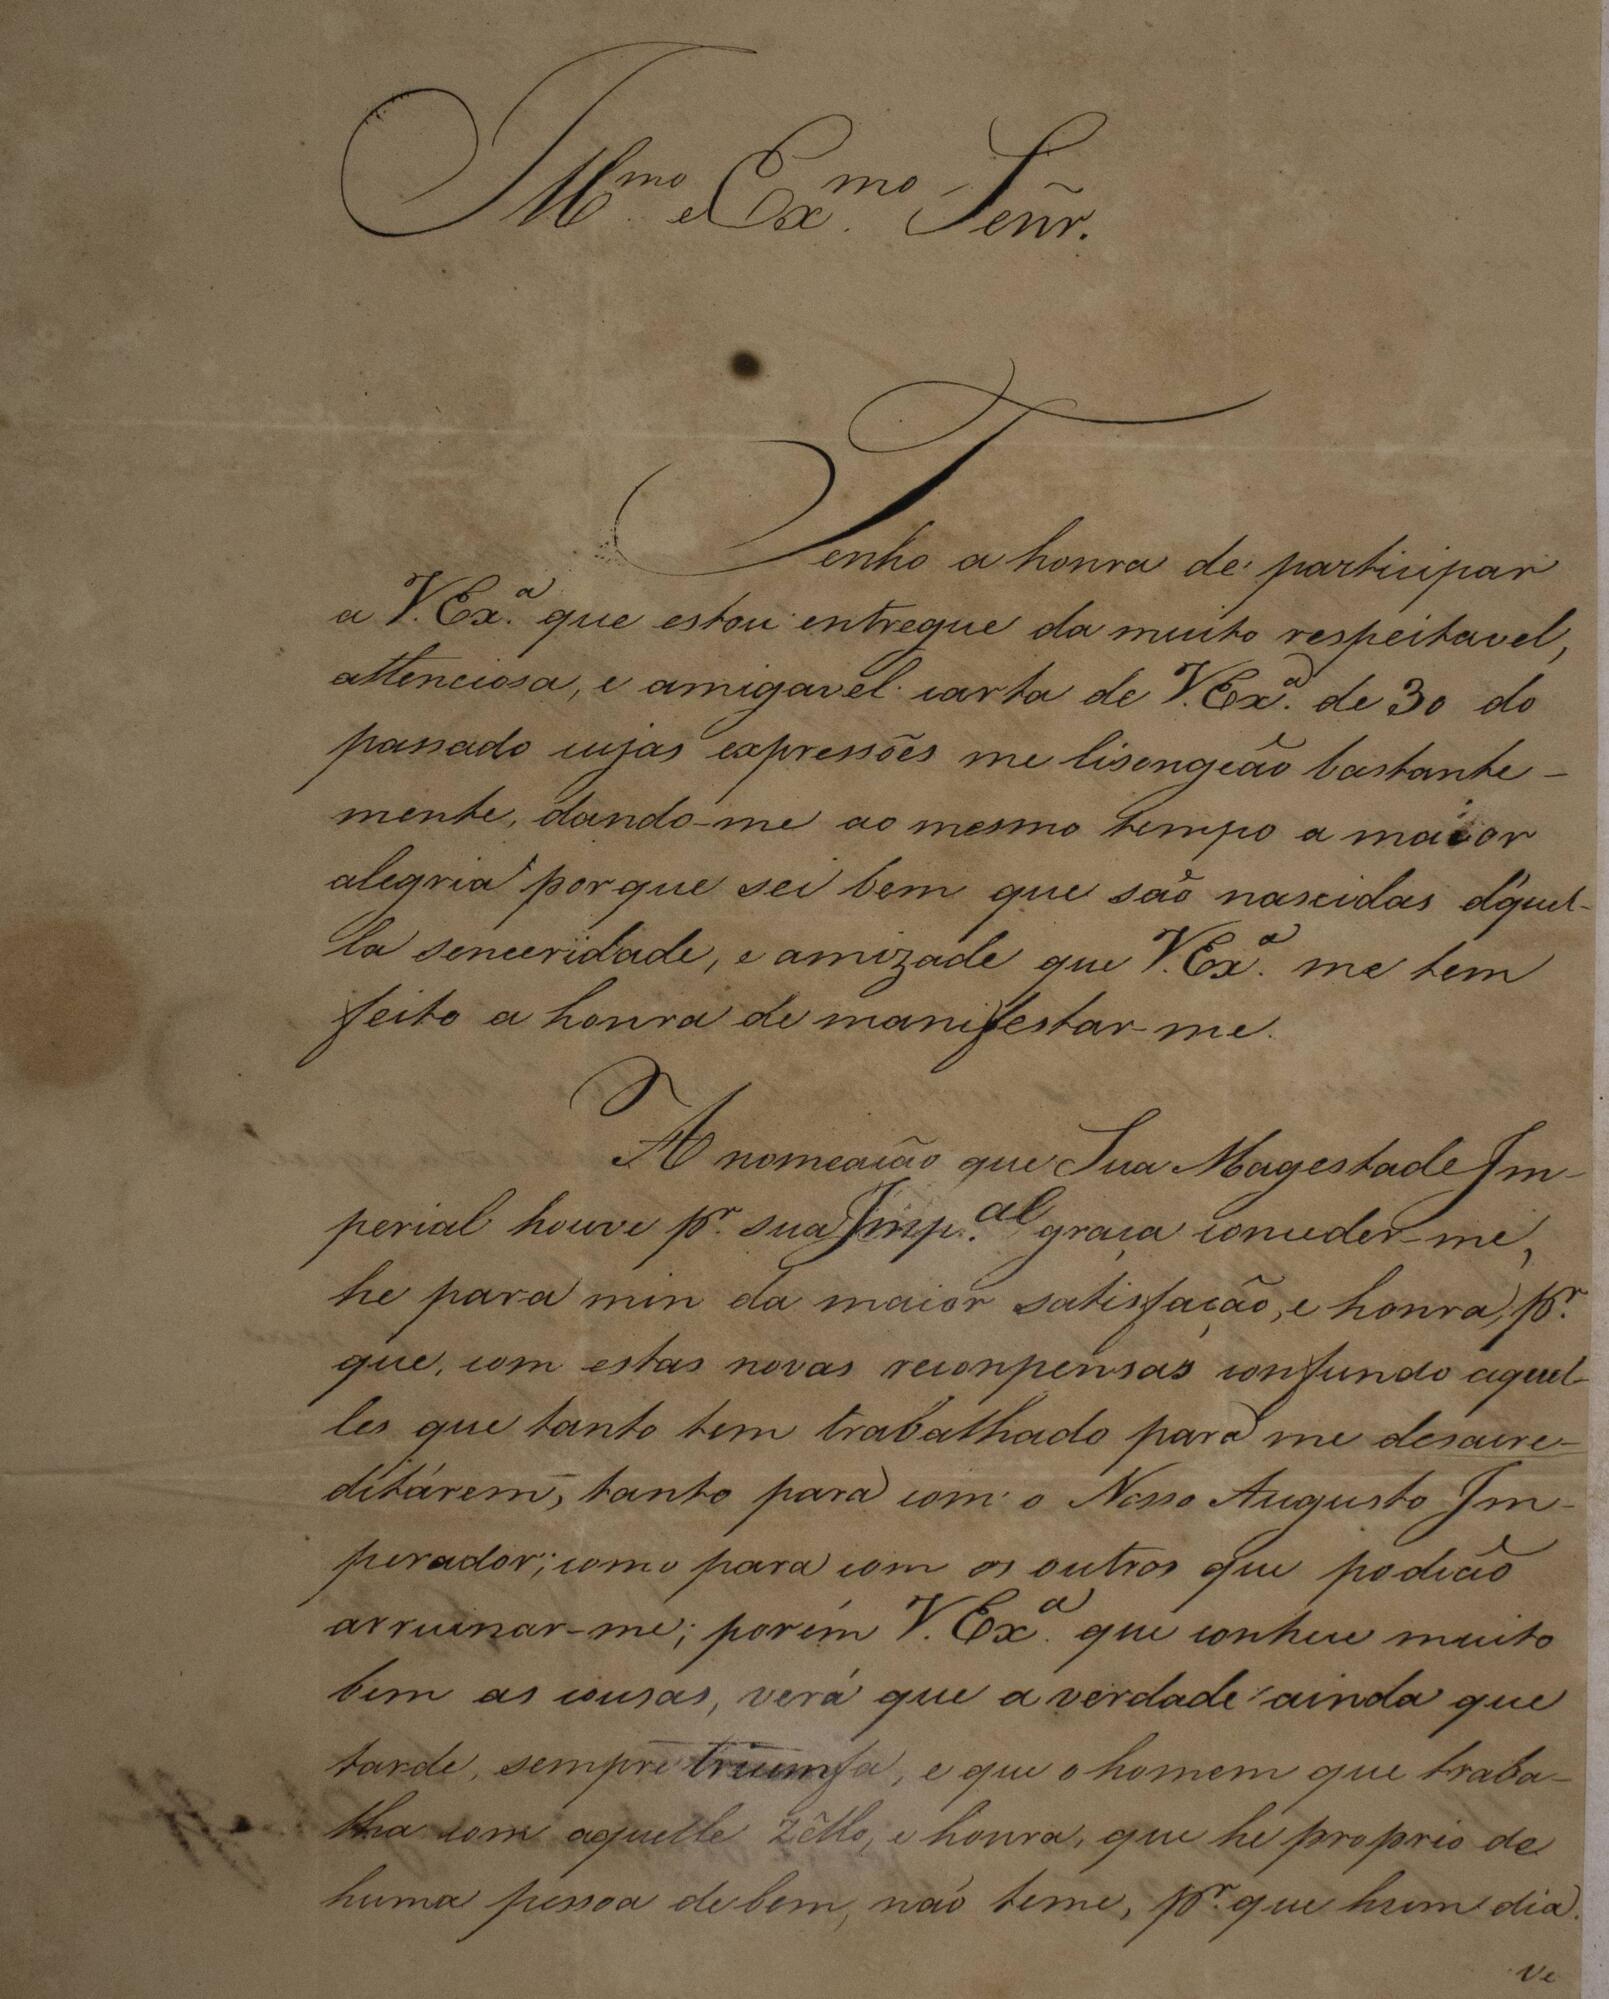 Illmo. e Exmo. Señr.
Tenho a honra de participar
a V. Exa. que estou entregue da muito respeitavel,
attenciosa, e amigavel carta de V. Exa. de 30 do
passado cujas expressões me lisongeão bastante-
mente, dando-me ao mesmo tempo a maior
alegria porque sei bem que são nascidas d'quel-
la senceridade, e amizade que V. Exa. me tem
feito a honra de manifestar-me.
A nomeação que Sua Magestade Im-
perial houve pr. sua Imp.al graça conceder-me,
he para min da maior satisfação, e honra, pr.
que, com estas novas reconpensas confundo aquel-
les que tanto tem trabalhado para me desacre-
ditárem, tanto para com o Nosso Augusto Im-
perador; como para com os outros que podião
arruinar-me; porém V. Exa. que conhece muito
bem as cousas, verá que a verdade ainda que
tarde, sempre triumfa, e que o homem que traba-
lha com aquelle zêllo, e honra, que he proprio de
huma pessoa de bem, não teme, pr. que hum dia
ve